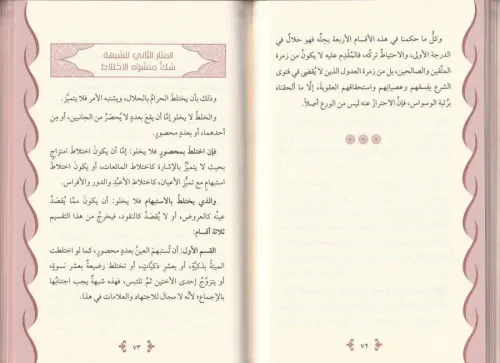 وكلُّ ما حكمنا في هذه الأقسام الأربعة بحِلِّه فهو حلال في
الدرجة الأولى، والاحتياط تركُه، فالمُقدِم عليه لا يكونُ من زمرة
المتَّقين والصالحين، بل من زمرة العدول الذين لا يُقضى في فتوى
الشرع بفِسقهم وعصيانِهم واستحقاقهم العقوبةَ، إلَّا ما ألحقناه
برُتبة الوسواس، فإنَّ الاحترازَ عنه ليس من الورع أصلاً.
٧٢
المثار الثاني للشبهة
شكٌّ منشؤه الاختلاط
وذلك بأن يختلط الحرامُ بالحلال، ويشتبه الأمر فلا يتميَّز.
والخلطُ لا يخلو: إمَّا أن يقعَ بعددٍ لا يُحصَرُ من الجانبين، أو مِن
أحدهما، أو بعددٍ محصورٍ.
فإن اختلط بمحصورٍ فلا يخلو: إمَّا أن يكونَ اختلاطَ امتزاجٍ
بحيث لا يتميَّز بالإشارة كاختلاط المائعات، أو يكون اختلاطَ
استبهام مع تميُّز الأعيان، كاختلاط الأعبُد والدور والأفراس.
والذي يختلط بالاستبهام فلا يخلو: إمَّا أن يكونَ ممَّا يُقصَدُ
عينُه كالعروض، أو لا يُقصَدُ كالنقود، فيخرجُ من هذا التقسيم
ثلاثة أقسام:
القسم الأول: أن تُستبهمَ العينُ بعددٍ محصورٍ، كما لو اختلطت
الميتةُ بذكيَّةٍ، أو بعشرِ ذكيَّاتٍ، أو تختلط رضيعةٌ بعشرِ نسوةٍ،
أو يتزوَّج إحدى الأختين ثمَّ تلتبس، فهذه شبهةٌ يجب اجتنابُها
بالإجماع؛ لأنَّه لا مجالَ للاجتهاد والعلامات في هذا.
٧٣